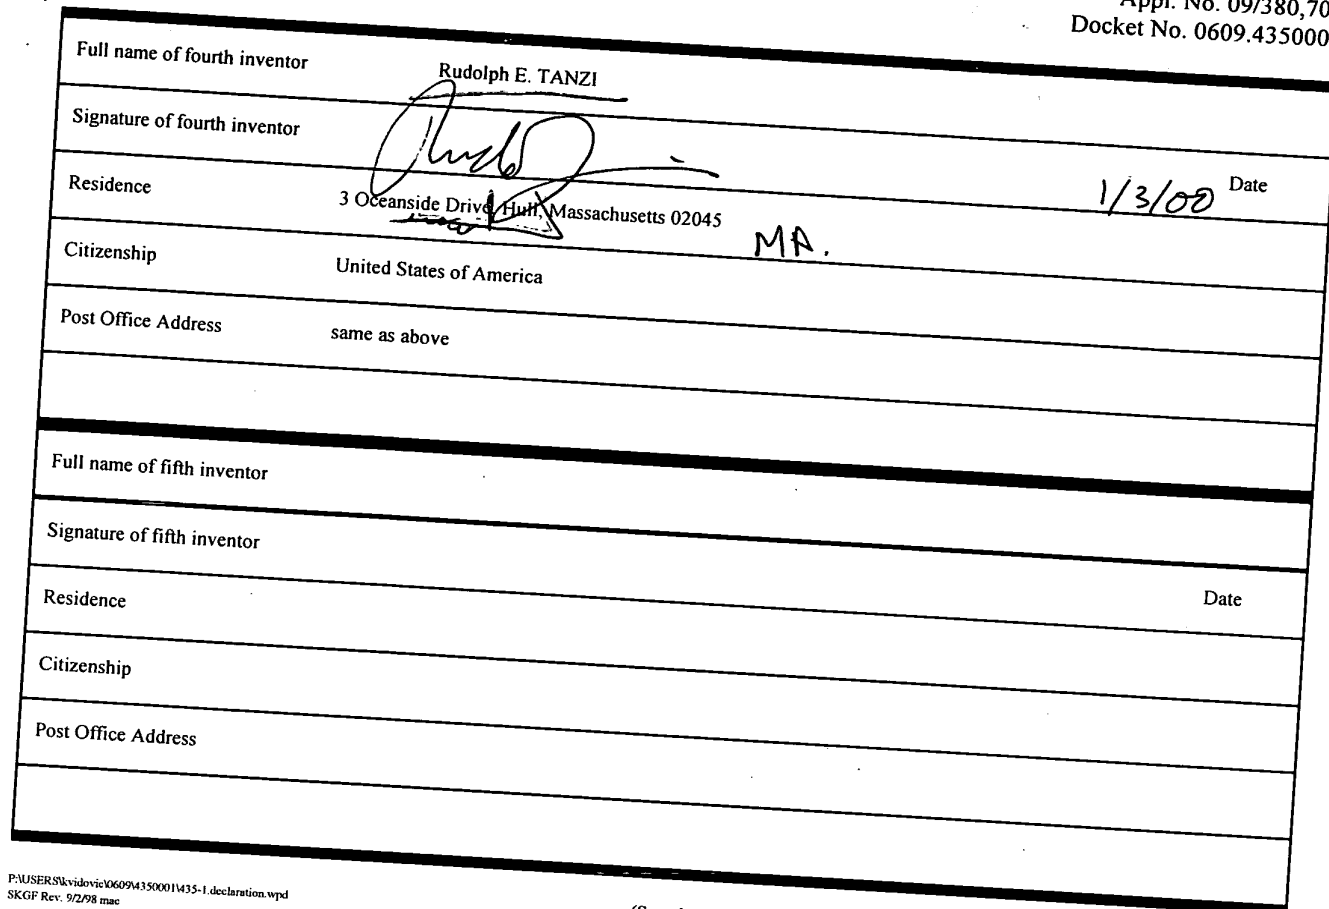 Appl. No. 09/380,70
Docket No. 0609.435000
Full name of fourth inventor Rudolph E. TANZI
Signature of fourth inventor
Date
1/3/00
Residence 3 Oceanside Drive, Hull, Massachusetts 02045
MA.
Citizenship United States of America
Post Office Address same as above
Full name of fifth inventor
Signature of fifth inventor
Date
Residence
Citizenship
Post Office Address
P:\USERS\kvidovic\0609\4350001\435-1.declaration.wpd
SKGF Rev. 9/2/98 mac